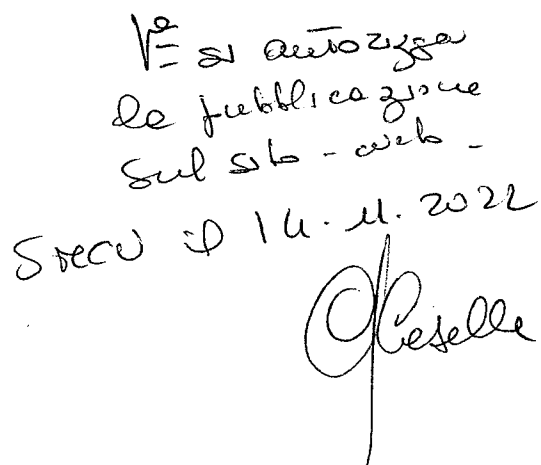 V° si autorizza
la pubblicazione
sul sito-web-
il 14.11.2022